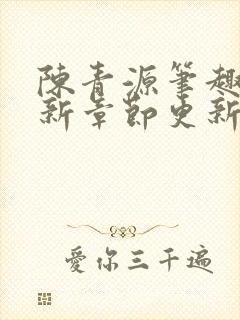 陳青源筆趣
新章節更新
愛你三千遍